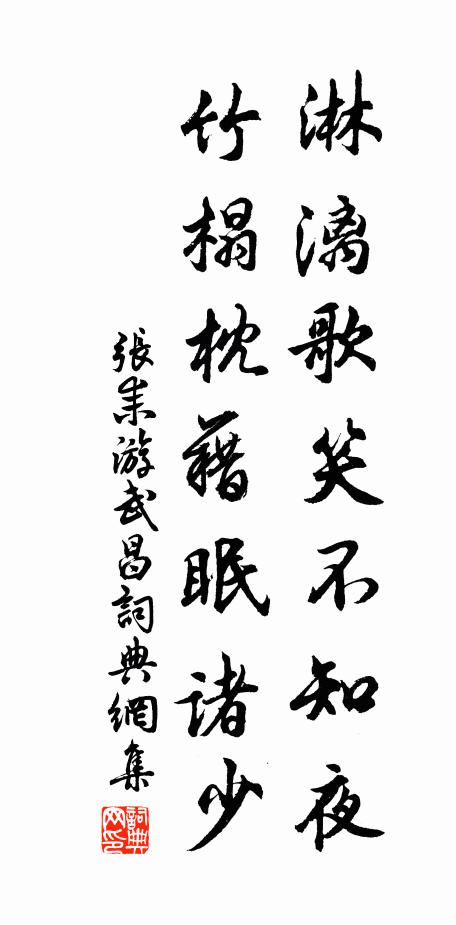 淋漓歌笑不知夜
竹榻枕藉眠諸少
張耒游武昌詞典網集
詞典网印